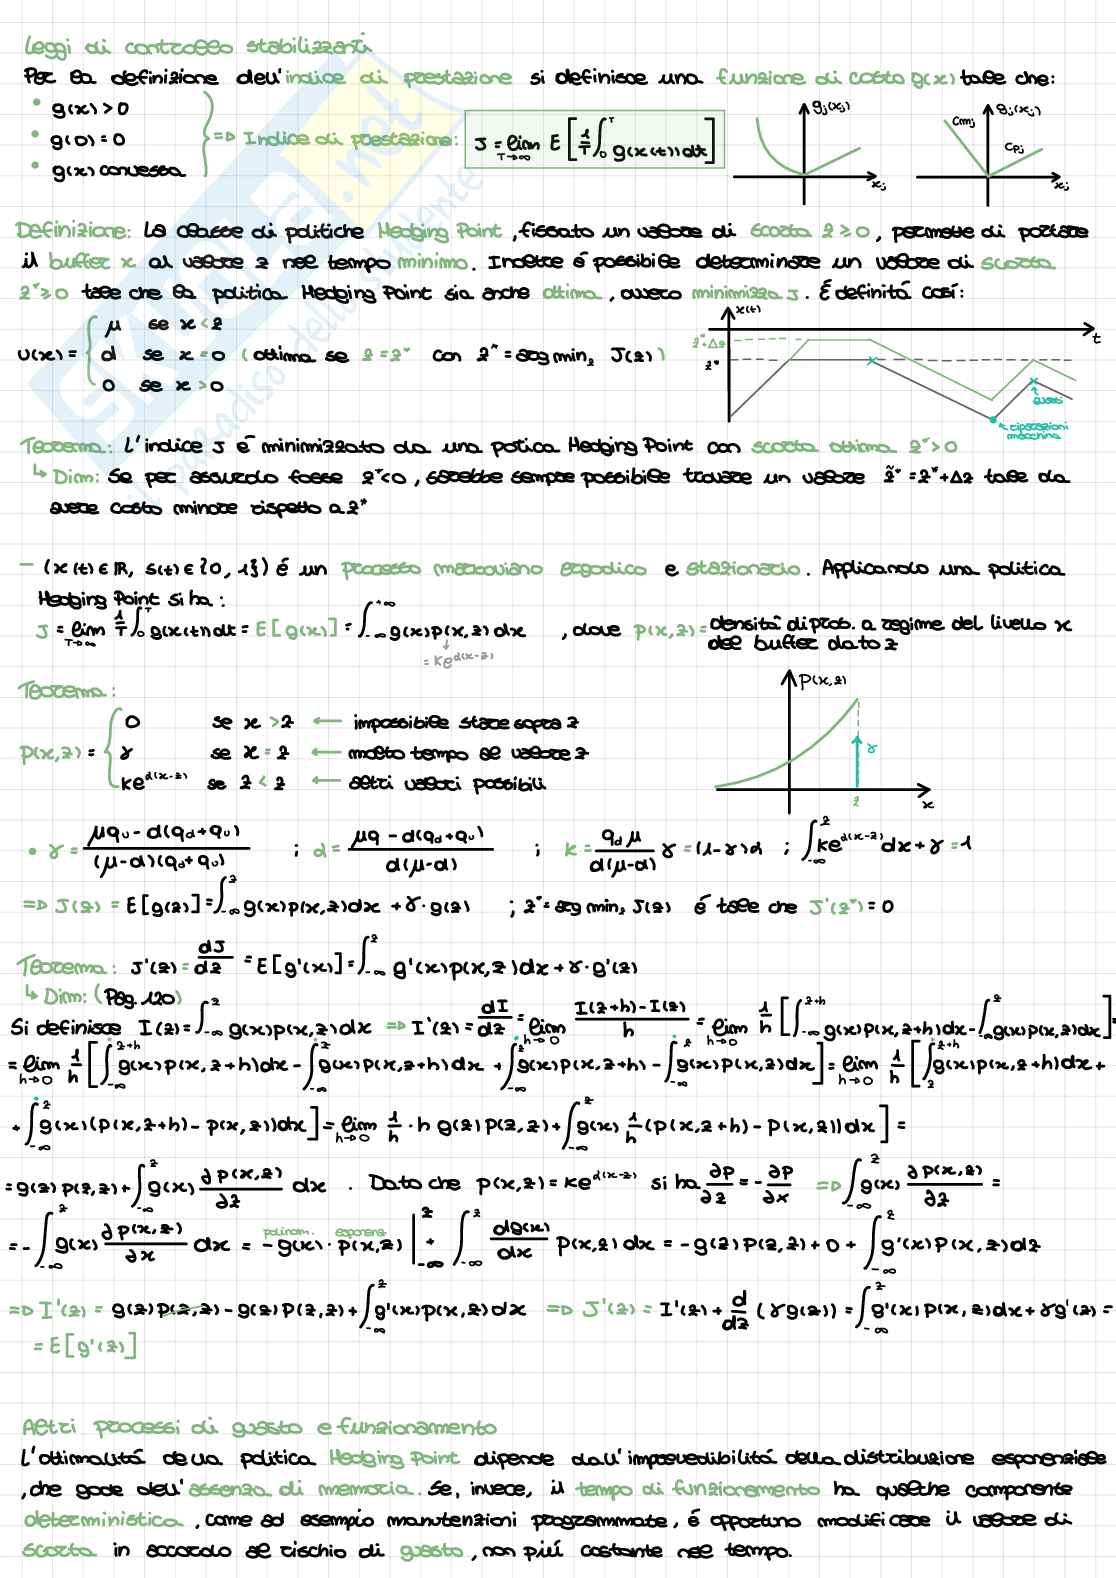 Leggi di controllo stabilizzanti
Per la definizione dell'indice di prestazione si definisce una funzione di costo g(x) tale che:
• g(x) > 0
• g(0) = 0
• g(x) convessa
=> Indice di prestazione: J = lim_{T→∞} E [ 1/T ∫_0^T g(x(t)) dt ]
g_j(x_j)
x_j
g_j(x_j)
Cmj
Cpj
x_j
Definizione: La classe di politiche Hedging Point, fissato un valore di scorta z ≥ 0, permette di portare
il buffer x al valore z nel tempo minimo. Inoltre é possibile determinare un valore di scorta
z* ≥ 0 tale che la politica Hedging Point sia anche ottima, ovvero minimizza J. É definitá così:
u(x) = { μ se x < z
d se x = 0 (ottima se z = z* con z* = arg min_z J(z))
0 se x > 0
x(t)
t
z*+Δz
z*
guasti
riparazioni macchina
Teorema: L'indice J é minimizzato da una potica Hedging Point con scorta ottima z* > 0
↳ Dim: Se per assurdo fosse z* < 0, sarebbe sempre possibile trovare un valore z̃* = z* + Δz tale da
avere costo minore rispetto a z*
– (x(t) ∈ ℝ, s(t) ∈ {0, 1}) é un processo markoviano ergodico e stazionario. Applicando una politica
Hedging Point si ha:
J = lim_{T→∞} 1/T ∫_0^T g(x(t)) dt = E[g(x)] = ∫_{-∞}^{+∞} g(x) p(x,z) dx , dove p(x,z) = densitá di prob. a regime del livello x
del buffer dato z
= Ke^{α(x-z)}
Teorema:
p(x,z) = { 0 se x > z ← impossibile stare sopra z
γ se x = z ← molto tempo al valore z
Ke^{α(x-z)} se z < z ← altri valori possibili
P(x,z)
γ
z
x
• γ = (μq_u - d(q_d+q_u)) / ((μ-d)(q_d+q_u)) ; α = (μq - d(q_d+q_u)) / (d(μ-d)) ; K = (q_d μ) / (d(μ-d)) γ = (1-γ)α ; ∫_{-∞}^z Ke^{α(x-z)} dx + γ = 1
=> J(z) = E[g(z)] = ∫_{-∞}^z g(x) p(x,z) dx + γ·g(z) ; z* = arg min_z J(z) é tale che J'(z*) = 0
Teorema: J'(z) = dJ/dz = E[g'(x)] = ∫_{-∞}^z g'(x) p(x,z) dx + γ·g'(z)
↳ Dim: (Pag. 120)
Si definisce I(z) = ∫_{-∞}^z g(x) p(x,z) dx => I'(z) = dI/dz = lim_{h→0} (I(z+h) - I(z))/h = lim_{h→0} 1/h [ ∫_{-∞}^{z+h} g(x) p(x,z+h) dx - ∫_{-∞}^z g(x) p(x,z) dx ] =
= lim_{h→0} 1/h [ ∫_{-∞}^{z+h} g(x) p(x,z+h) dx - ∫_{-∞}^z g(x) p(x,z+h) dx + ∫_{-∞}^z g(x) p(x,z+h) - ∫_{-∞}^z g(x) p(x,z) dx ] = lim_{h→0} 1/h [ ∫_z^{z+h} g(x) p(x,z+h) dx +
+ ∫_{-∞}^z g(x) (p(x,z+h) - p(x,z)) dx ] = lim_{h→0} 1/h · h g(z) p(z,z) + ∫_{-∞}^z g(x) 1/h (p(x,z+h) - p(x,z)) dx ] =
= g(z) p(z,z) + ∫_{-∞}^z g(x) ∂p(x,z)/∂z dx . Dato che p(x,z) = Ke^{α(x-z)} si ha ∂p/∂z = - ∂p/∂x => ∫_{-∞}^z g(x) ∂p(x,z)/∂z =
= - ∫_{-∞}^z g(x) ∂p(x,z)/∂x dx = - g(x) · p(x,z) |_{-∞}^z + ∫_{-∞}^z dg(x)/dx p(x,z) dx = - g(z) p(z,z) + 0 + ∫_{-∞}^z g'(x) p(x,z) dz
polinom. esponenz
=> I'(z) = g(z) p(z,z) - g(z) p(z,z) + ∫_{-∞}^z g'(x) p(x,z) dx => J'(z) = I'(z) + d/dz (γg(z)) = ∫_{-∞}^z g'(x) p(x,z) dx + γg'(z) =
= E[g'(z)]
Altri processi di guasto e funzionamento
L'ottimalitá della politica Hedging Point dipende dall'imprevedibilitá della distribuzione esponenziale
, che gode dell'assenza di memoria. Se, invece, il tempo di funzionamento ha qualche componente
deterministica, come ad esempio manutenzioni programmate, é opportuno modificare il valore di
scorta in accordo al rischio di guasto, non piú costante nel tempo.
SKUOLA.net
il paradiso dello studente